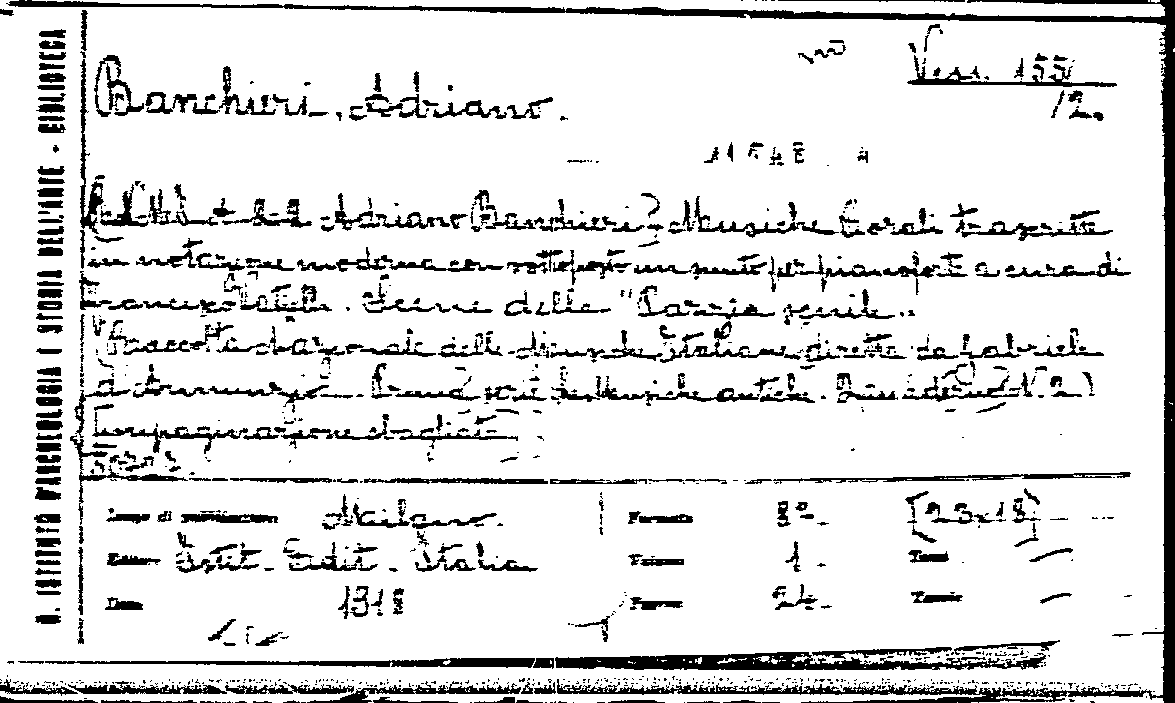 R. ISTITUTO D'ARCHEOLOGIA E STORIA DELL'ARTE - BIBLIOTECA
Vess. 155
/2.
Banchieri, Adriano.
11548
Adriano Banchieri. Musiche corali trascritte
in notazione moderna con sottoposto un sunto per pianoforte a cura di
Francesco Vatielli. Scene della "Pazzia senile".
(Raccolta Nazionale delle Musiche Italiane diretta da Gabriele
d'Annunzio. Prima serie delle Musiche antiche. Quaderno N. 2)
(Impaginazione sbagliata
Luogo di pubblicazione Milano. Formato 8º. (25x18)
Editore Istit. Edit. Italia Volume 1. Tomi —
Data 1918 Pagine 24. Tavole —